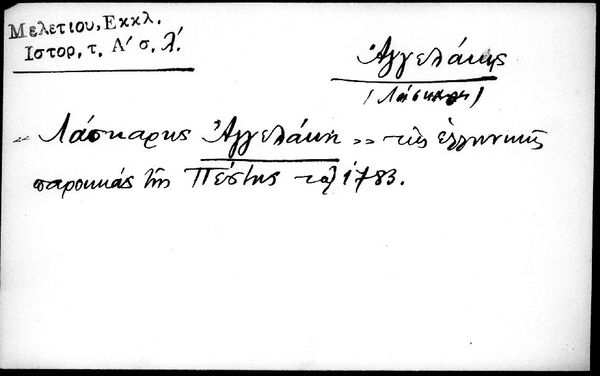 Μελετίου, Εκκλ.
Ιστορ, τ. Α' σ. λ'.
Ἀγγελάκης
(Λάσκαρης)
Λάσκαρης Ἀγγελάκη » τῆς ἑλληνικῆς
παροικιάς τῆς Πέστης τῷ 1783.